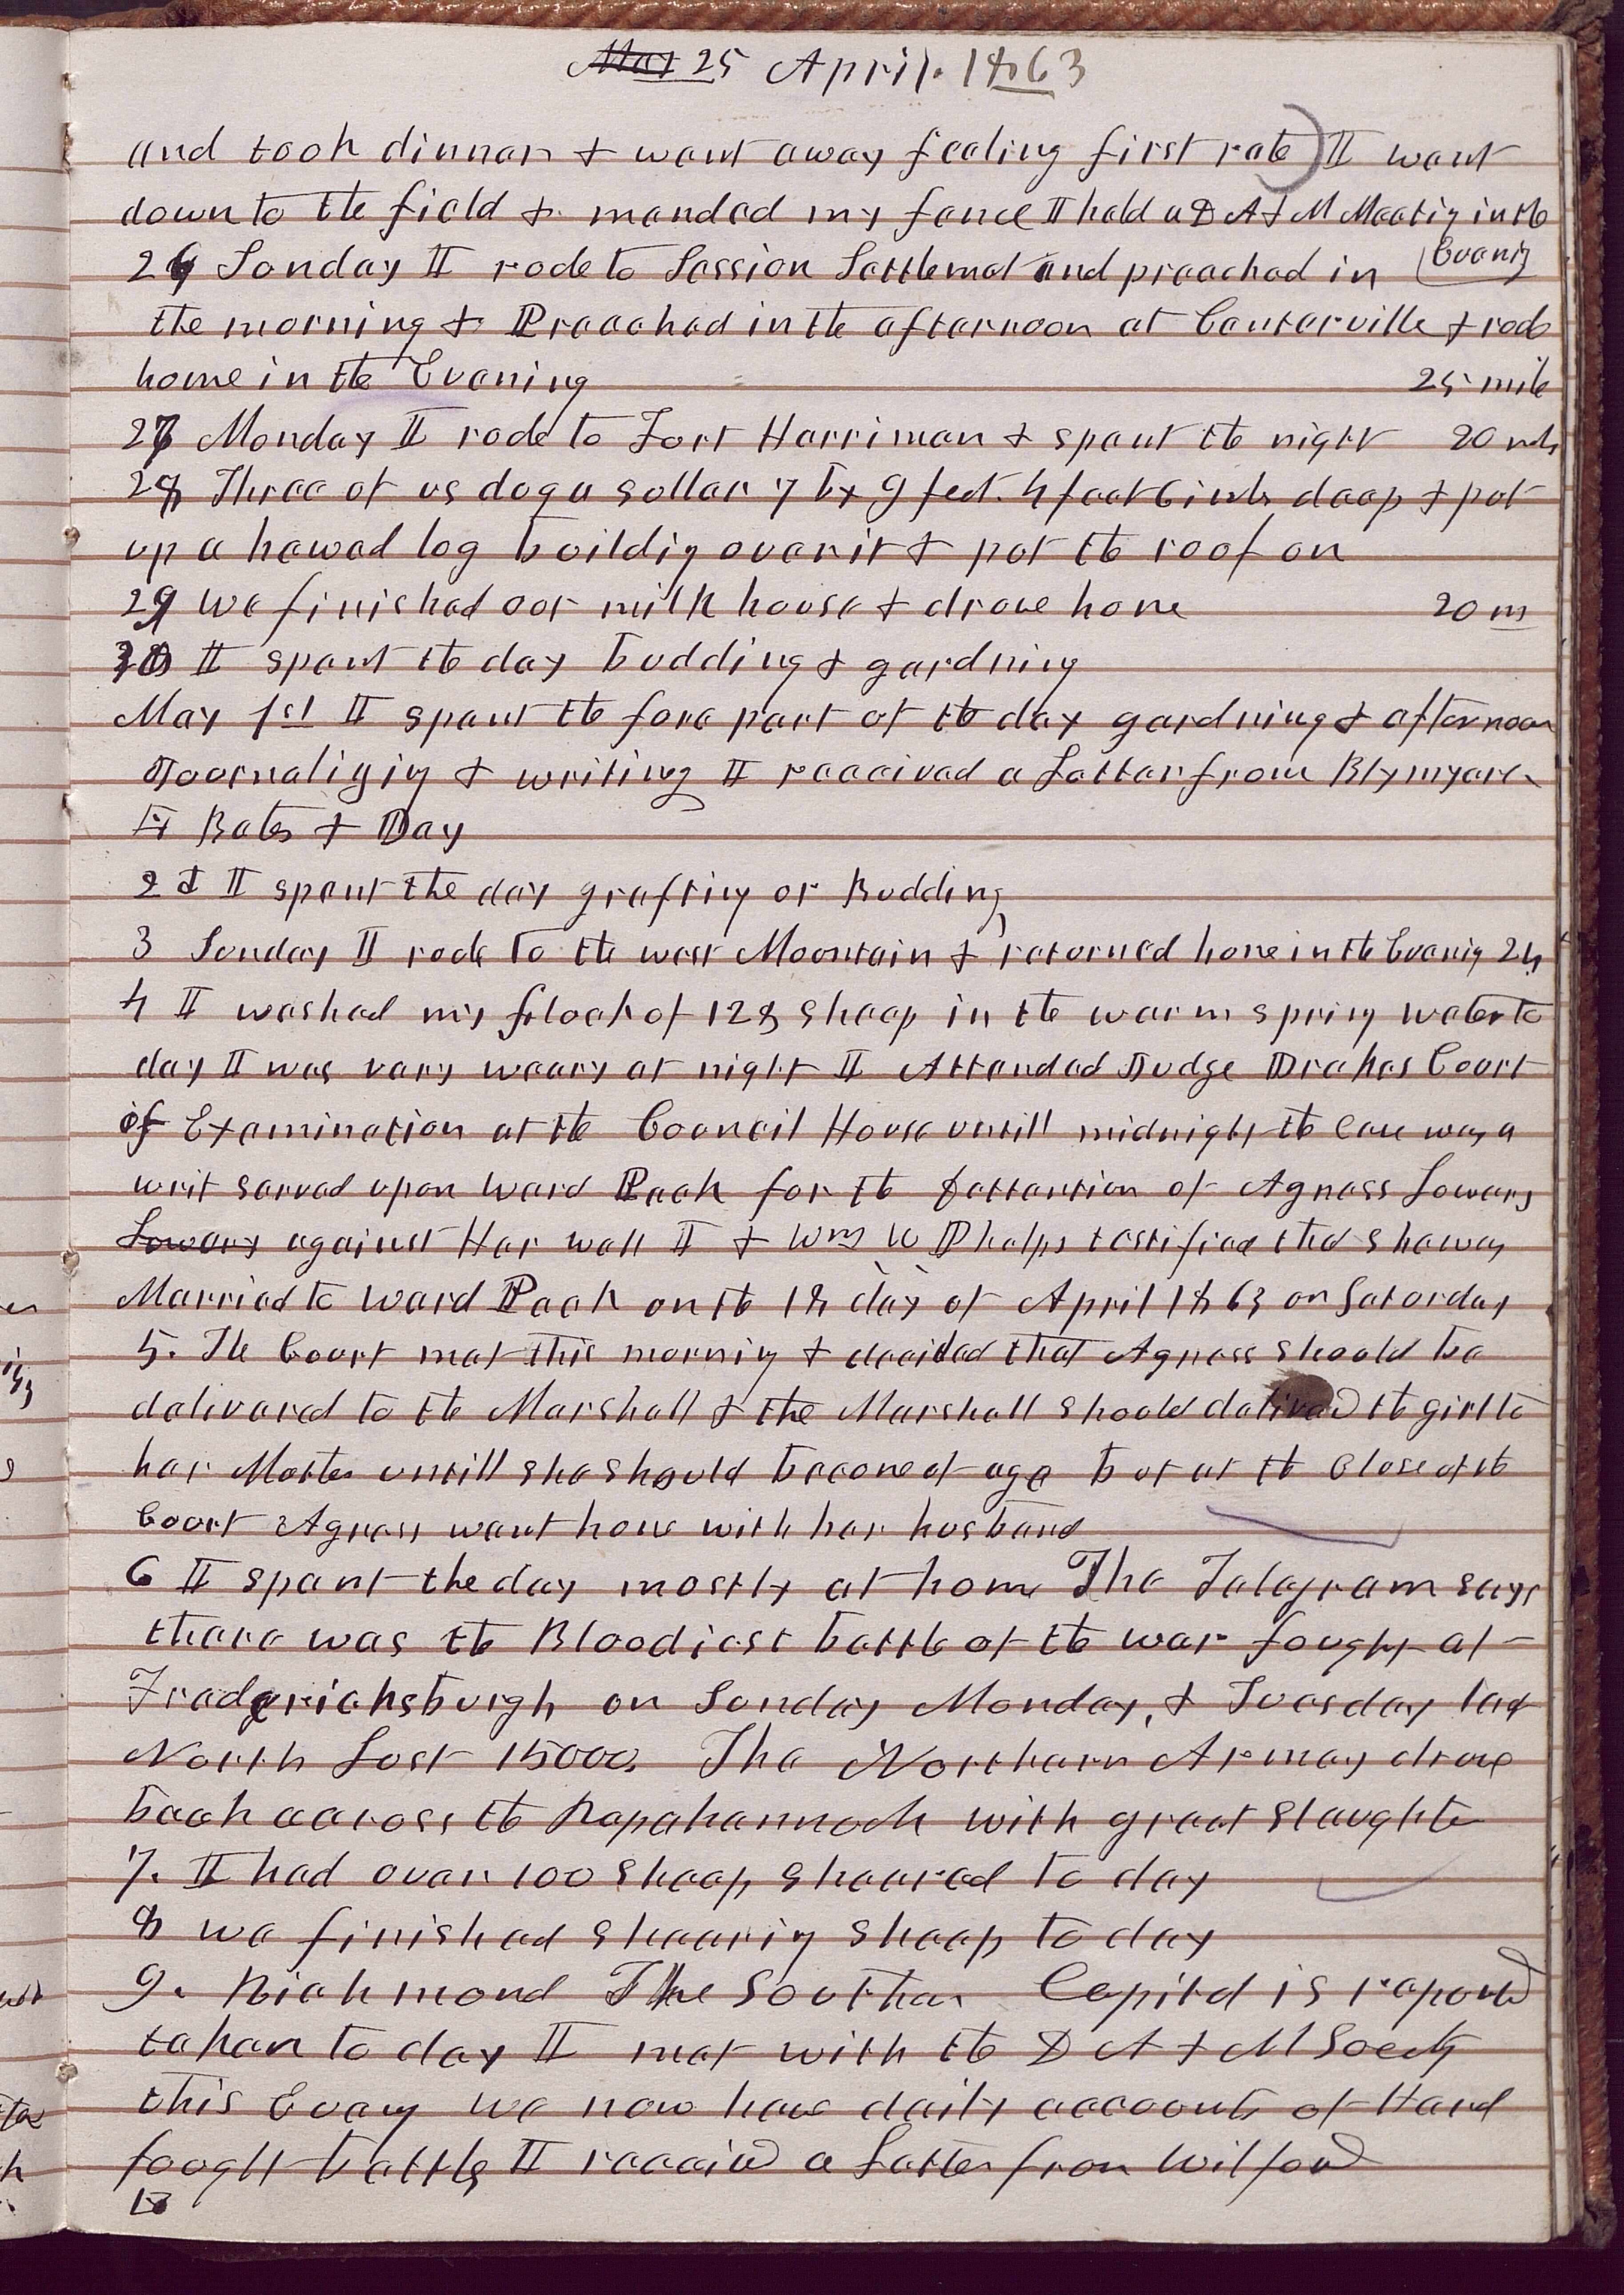 Mar 25 April. 1863
and took dinner & went away feeling first rate) I went
down to the field & mended my fence I held a D A & M Meetig in the
Evenig
26 Sunday I rode to Session Settlemet and preached in
the morning & Preached in the afternoon at Centerville & rode
home in the Evening 25 mile
27 Monday I rode to Fort Harriman & spent the night 20 mls
28 Three of us dug a sellar 7 by 9 feet. 4 feet 6 inch deep & put
up a hewed log buildig over it & put the roof on
29 we finished our milk house & drove home 20 m
30 I spent the day budding & gardning
May 1st I spent the fore part of the day gardning & afternoon
Journalizig & writing I received a Letter from Blymyare
Bates & Day
2d I spent the day graftig or Budding
3 Sunday I rode to the west Mountain & returned home in the Evenig 24
4 I washed my flock of 128 sheep in the warm spring water to
day I was very weary at night I Attended Judge Drakes Court
of Examination at the Council House untill midnight the Case was a
writ served upon Ward Pack for the detention of Agness Lowery
Lowery against Her will I & Wm W Phelps testified that she was
Married to Ward Pack on the 18 day of April 1863 on Saturday
5. The Court met this mornig & decided that Agness should be
delivered to the Marshall & the Marshall should delived the girl to
her Mother untill she should become of age but at the Close of the
Court Agness went home with her husband
6 I spent the day mostly at home The Telegram says
there was the Bloodiest battle of the war fought at
Fradgricksburgh on Sunday Monday, & Tuesday last
North Lost 15000. The Northern Armey drove
back across the Rapahannock with great slaughter
7. I had over 100 sheep sheared to day
8 we finished shearig sheep to day
9. Richmond The Southern Capitol is reported
taken to day I met with the D A & M Socety
this Eveng we now have daily accounts of Hard
fought battles I receivd a Letter from Wilford